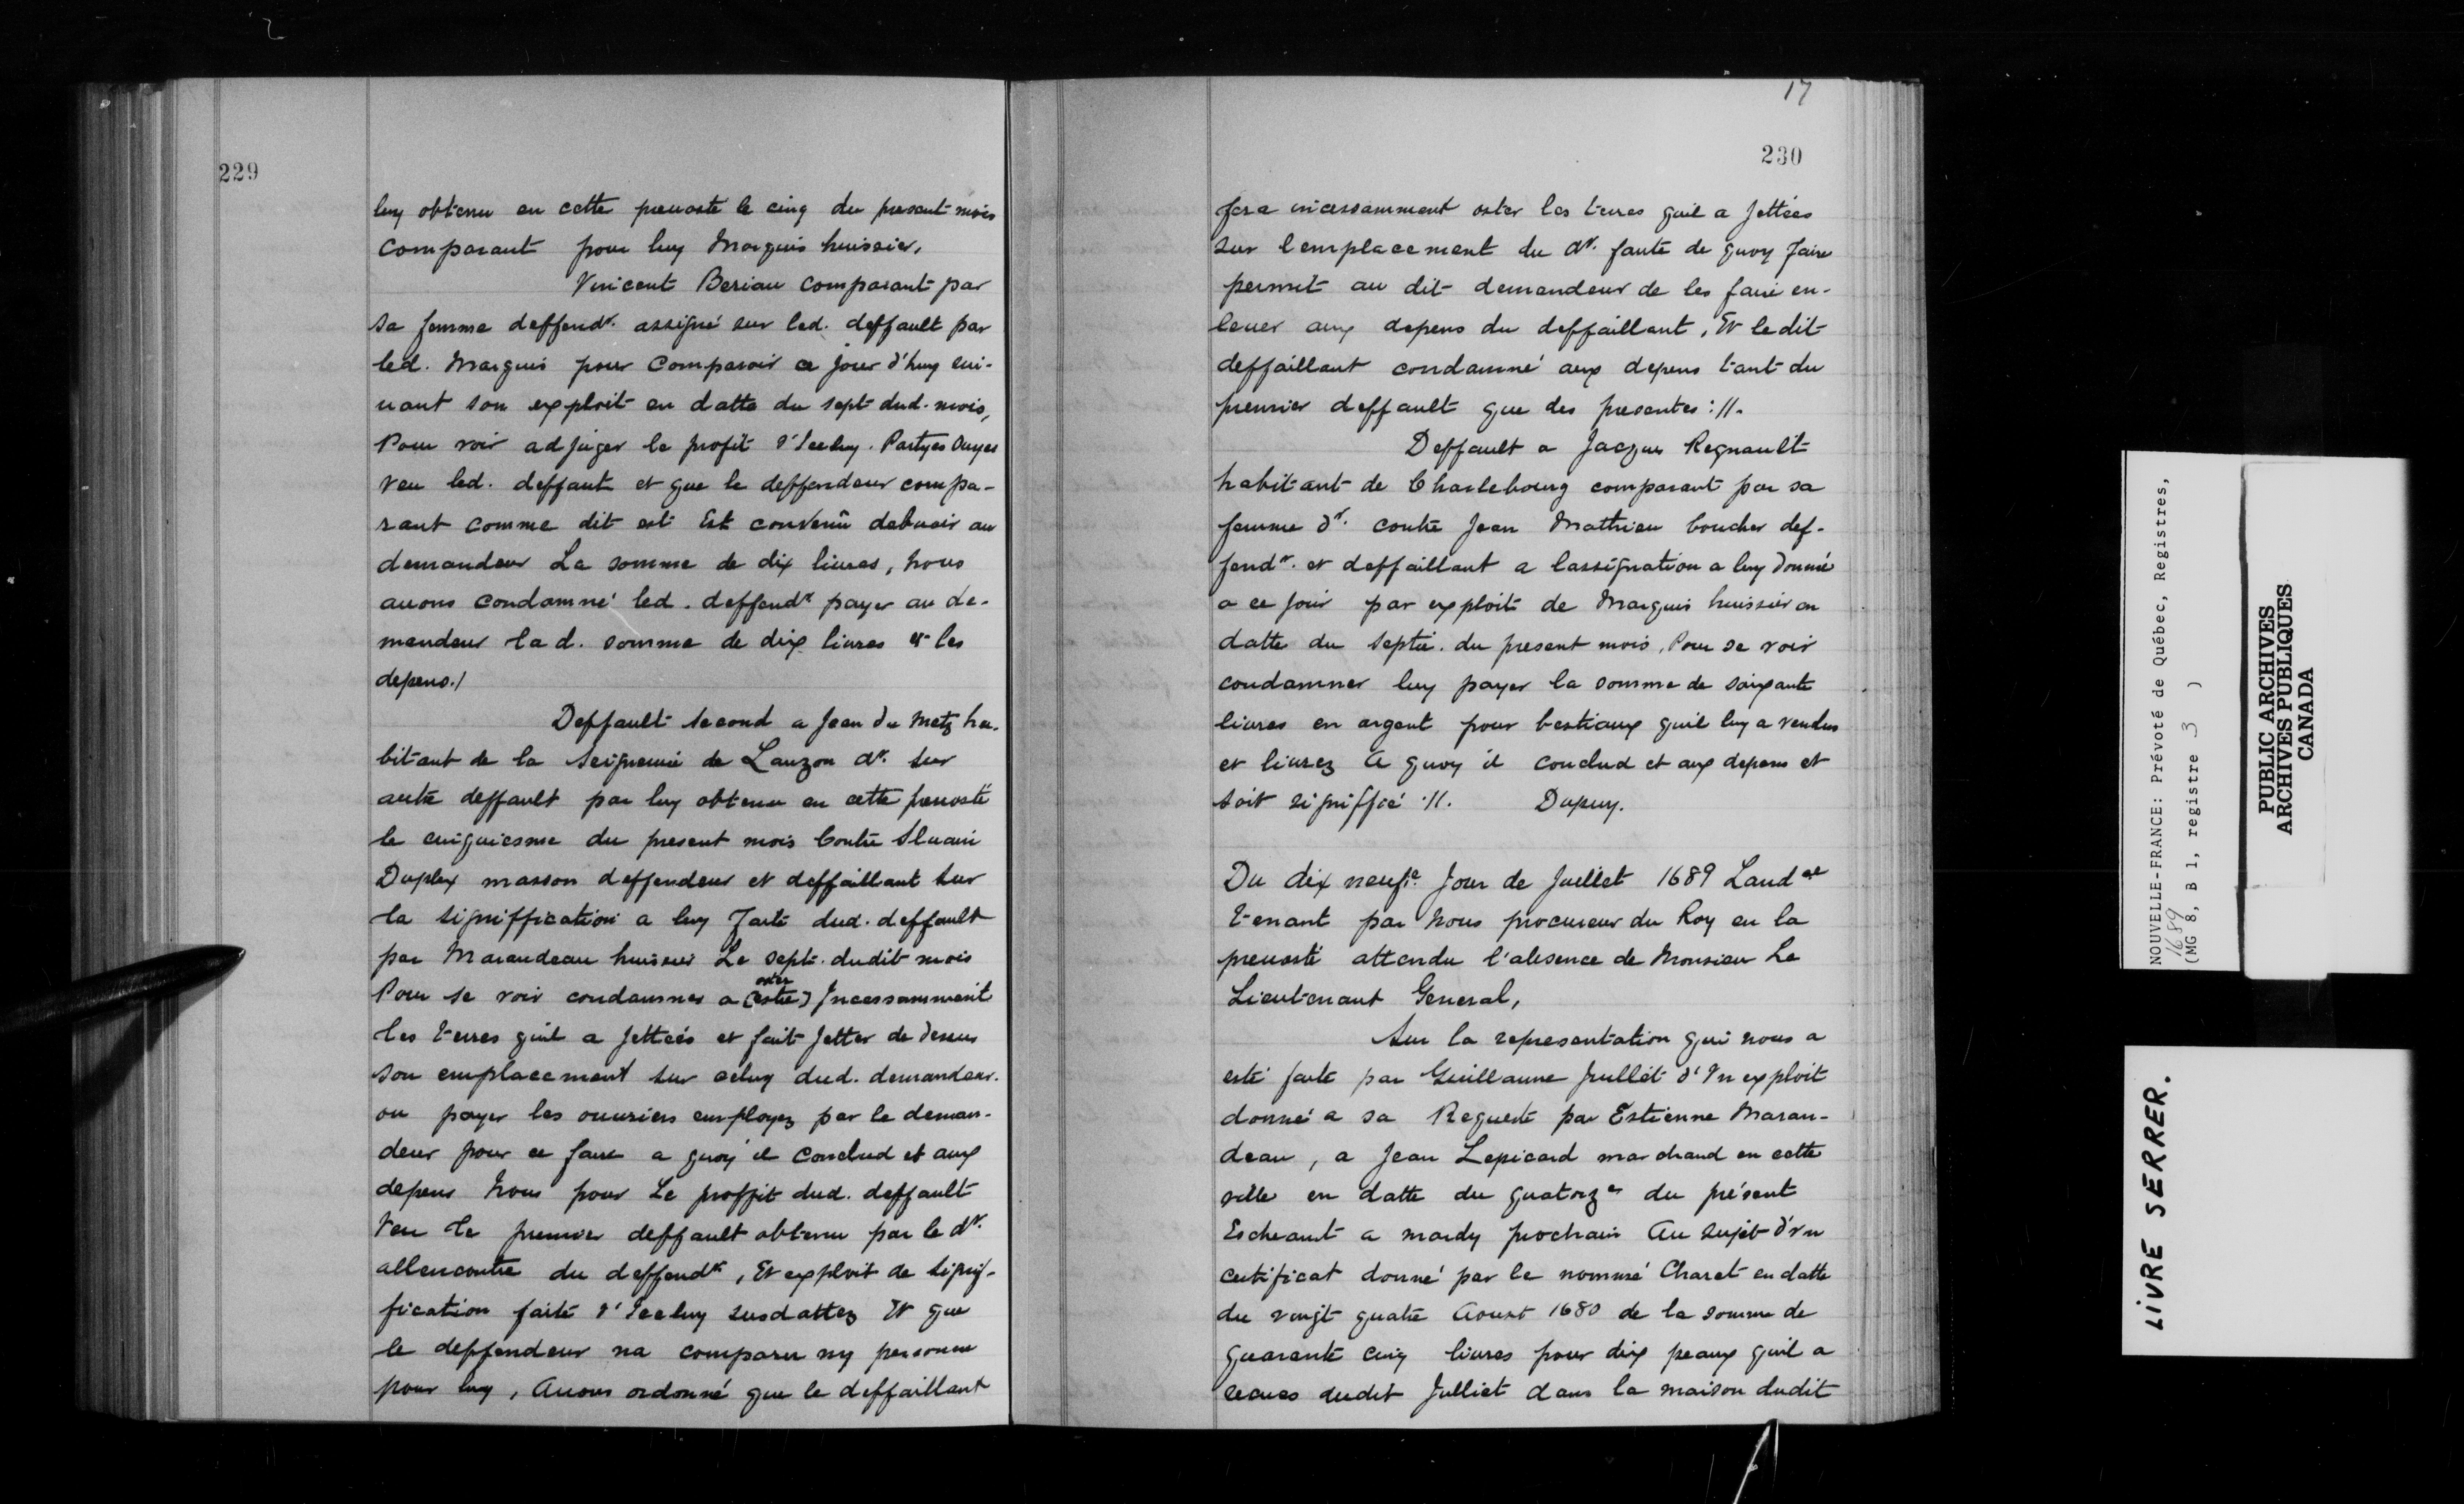 229
luy obtenu en cette preuosté le cinq du present mois
Comparant pour luy Marquis huissier,
Vincent Beriau comparant par
sa femme deffendr. assigné sur led. deffault par
led. Marquis pour Comparoir ce jour d'huy sui-
uant son exploit en datte du sept dud. mois,
Pour voir adjuger le profit d'Iceluy. Partyes Ouyes
veu led. deffaut et que le deffendeur compa-
rant comme dit est Est convenû debuoir au
demandeur La somme de dix liures, nous
auons condamné led. deffendr payer au de-
mandeur lad. somme de dix liures et les
depens./
Deffault second a Jean du Metz ha-
bitant de la Seigneurie de Lauzon dr. sur
autre deffault par luy obtenu en cette preuosté
le cinquiesme du present mois Contre Siluain
Duplex masson deffendeur et deffaillant sur
la signiffication a luy faite dud. deffault
par Marandeau huissier Le sept. dudit mois
Pour se voir condamner a (estre) oster Incessamment
les terres quil a Jettées et fait Jetter de dessus
son emplacement sur celuy dud. demandeur.
ou payer les ouuriers employez par le deman-
deur pour ce faire a quoy il Conclud et aux
depens Nous pour Le proffit dud. deffault
Veu le premier deffault obtenu par le dr.
allencontre du deffendr, Et exploit de signif-
fication faite d'Iceluy susdattez Et que
le deffendeur na comparu ny personne
pour luy, Auons ordonné que le deffaillant
17
230
fera incessamment oster les terres quil a Jettées
sur l'emplacement du dr. faute de quoy faire
permit au dit demandeur de les faire en-
leuer aux depens du deffaillant, Et le dit
deffaillant condamné aux depens tant du
premier deffault que des presentes ://.
Deffault a Jacques Regnault
habitant de Charlebourg comparant par sa
femme dr. contre Jean Mathieu boucher def-
fendr. et deffaillant a lassignation a luy donné
a ce jour par exploit de Marquis huissier en
datte du septie. du present mois, Pour se voir
condamner luy payer la somme de soixante
liures en argent pour bestiaux quil luy a vendus
et liurez A quoy il conclud et aux depens et
soit signiffié .//. Dupuy.
Du dix neufe. Jour de Juillet 1689 Laudce
tenant par Nous procureur du Roy en la
preuosté attendu l'absence de Monsieur Le
Lieutenant General,
Sur la representation qui nous a
esté faite par Guillaume Jullet d'Vn exploit
donné a sa Requeste par Estienne Maran-
deau, a Jean Lepicard marchand en cette
ville en datte du quatorze du présent
Escheant a mardy prochain Au sujet d'vn
certificat donné par le nommé Charet en datte
du vingt quatre Aoust 1680 de la somme de
quarante cinq liures pour dix peaux quil a
receues dudit Julliet dans la maison dudit
NOUVELLE-FRANCE: Prévoté de Québec, Registres,
1689
(MG 8, B 1, registre 3 )
PUBLIC ARCHIVES
ARCHIVES PUBLIQUES
CANADA
LIVRE SERRER.